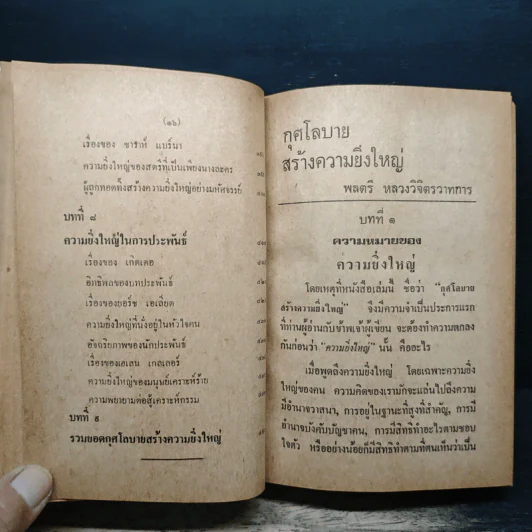 (๑๖)
เรื่องของ ซาราห์ แบร์นา
ความยิ่งใหญ่ของสตรีที่เป็นเพียงนางละคร
ผู้ถูกทอดทิ้งสร้างความยิ่งใหญ่อย่างมหัศจรรย์
บทที่ ๘
ความยิ่งใหญ่ในการประพันธ์
เรื่องของ เกิตเต
อิทธิพลของบทประพันธ์
เรื่องของยอร์ช เอเลียต
ความยิ่งใหญ่ที่นั่งอยู่ในหัวใจคน
อัจฉริยภาพของนักประพันธ์
เรื่องของเฮเลน เกลเลอร์
ความยิ่งใหญ่ของมนุษย์เคราะห์ร้าย
ความพยายามต่อสู้เคราะห์กรรม
บทที่ ๙
รวมยอดกุศโลบายสร้างความยิ่งใหญ่
กุศโลบาย
สร้างความยิ่งใหญ่
พลตรี หลวงวิจิตรวาทการ
บทที่ ๑
ความหมายของ
ความยิ่งใหญ่
โดยเหตุที่หนังสือเล่มนี้ ชื่อว่า "กุศโลบาย
สร้างความยิ่งใหญ่" จึงมีความจำเป็นประการแรก
ที่ท่านผู้อ่านกับข้าพเจ้าผู้เขียน จะต้องทำความตกลง
กันก่อนว่า "ความยิ่งใหญ่" นั้น คืออะไร
เมื่อพูดถึงความยิ่งใหญ่ โดยเฉพาะความยิ่ง
ใหญ่ของคน ความคิดของเรามักจะแล่นไปถึงความ
มีอำนาจวาสนา, การอยู่ในฐานะที่สูงที่สำคัญ, การมี
อำนาจบังคับบัญชาคน, การมีสิทธิทำอะไรตามชอบ
ใจตัว หรืออย่างน้อยก็มีสิทธิทำตามที่ตนเห็นว่าเป็น